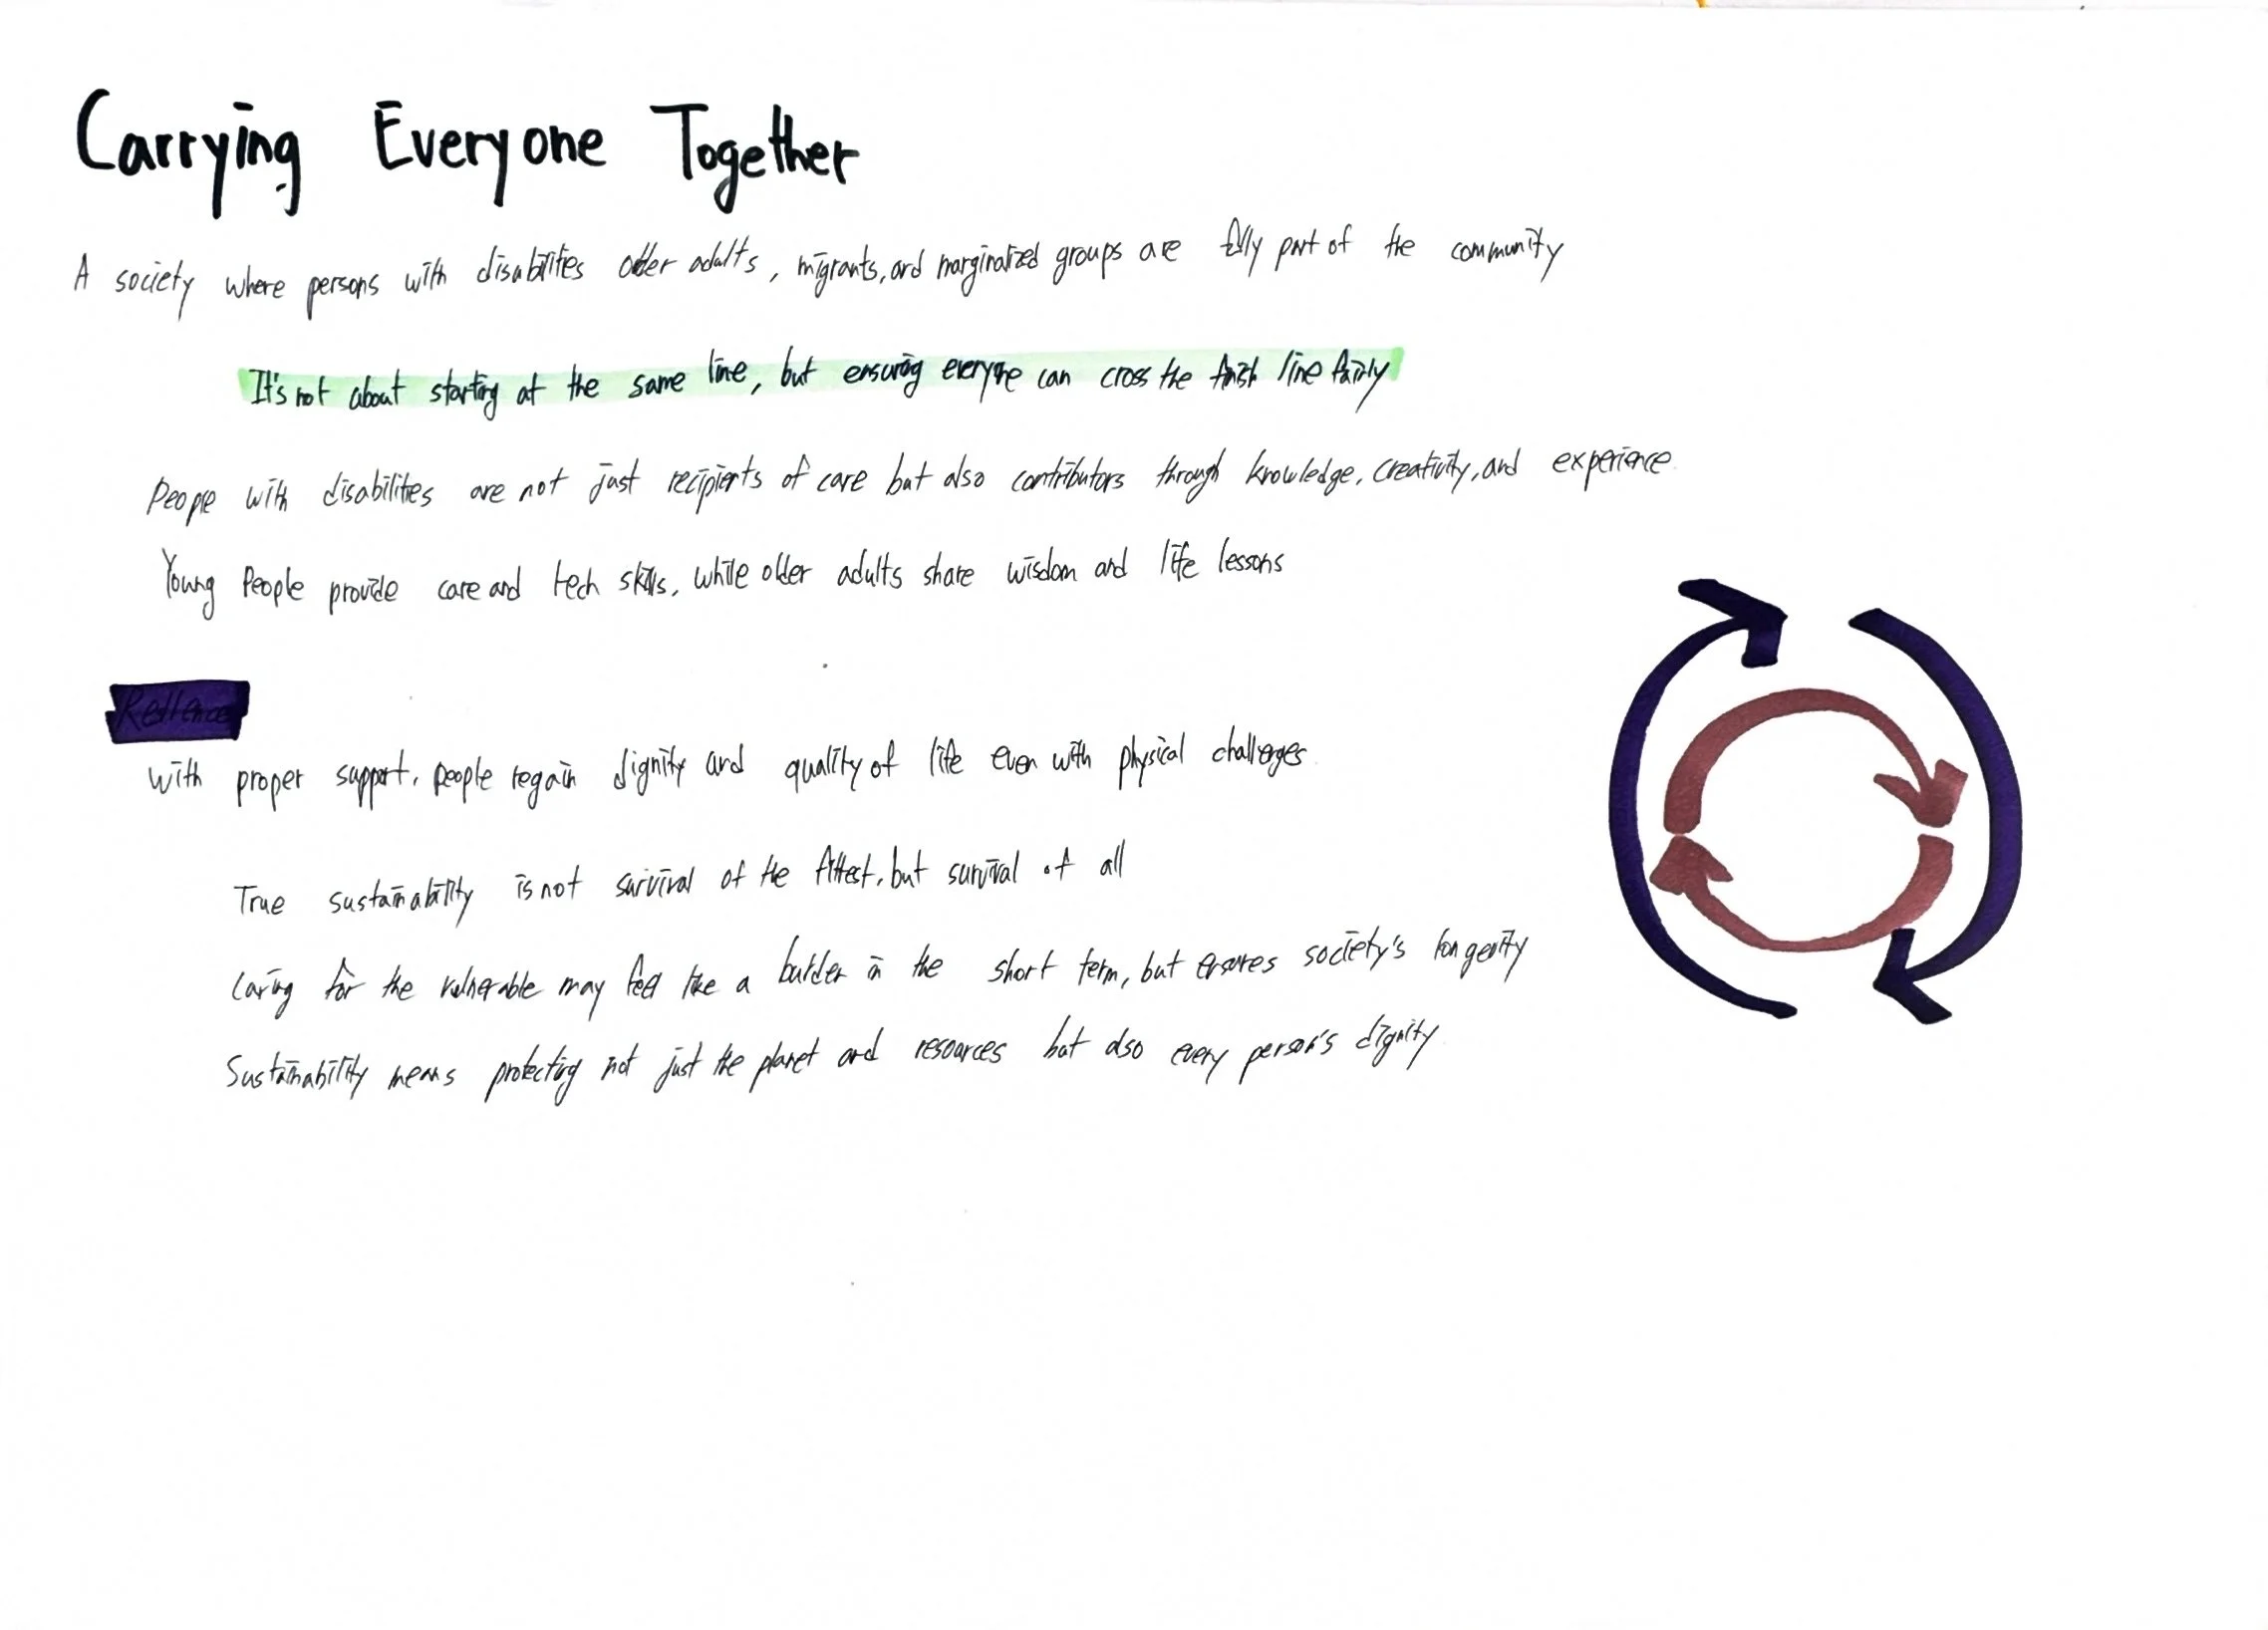 Carrying Everyone Together
A society where persons with disabilities older adults, migrants, and marginalized groups are fully part of the community
It's not about starting at the same line, but ensuring everyone can cross the finish line fairly
People with disabilities are not just recipients of care but also contributors through knowledge, creativity, and experience.
Young People provide care and tech skills, while older adults share wisdom and life lessons
with proper support, people regain dignity and quality of life even with physical challenges.
True sustainability is not survival of the fittest, but survival of all
Caring for the vulnerable may feel like a burden in the short term, but ensures society's longevity
Sustainability means protecting not just the planet and resources but also every person's dignity.